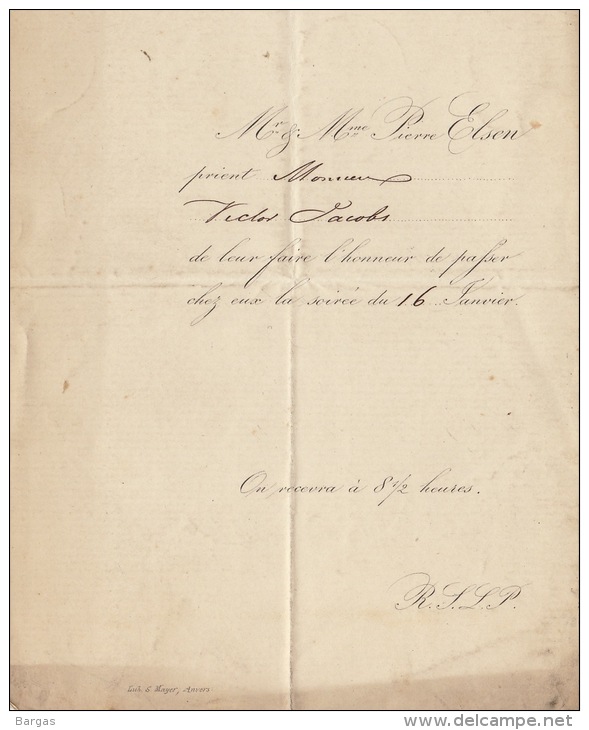 Mr & Mme Pierre Elsen
prient Monsieur
Victor Jacobs
de leur faire l'honneur de passer
chez eux la soirée du 16 Janvier.
On recevra à 8 1/2 heures.
R. S. L. P.
Lith. S. Mayer, Anvers
Bargas
delcampe.net